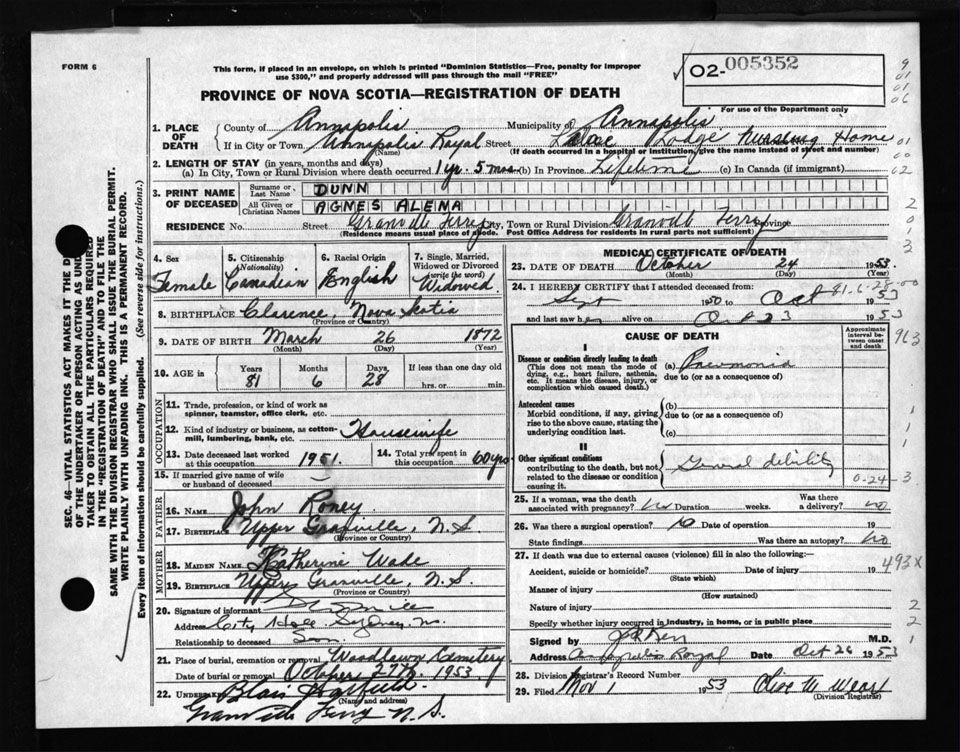 FORM 6
This form, if placed in an envelope, on which is printed "Dominion Statistics—Free, penalty for improper
use $300," and properly addressed will pass through the mail "FREE"
02-005352
For use of the Department only
PROVINCE OF NOVA SCOTIA—REGISTRATION OF DEATH
9
01
01
06
1. PLACE OF DEATH
County of Annapolis Municipality of Annapolis
If in City or Town Annapolis Royal Street Lodge Nursing Home
(Name) (If death occurred in a hospital or institution, give the name instead of street and number)
01
00
02
2. LENGTH OF STAY (in years, months and days)
(a) In City, Town or Rural Division where death occurred 1 yr. 5 mos. (b) In Province Lifetime (c) In Canada (if immigrant)
3. PRINT NAME OF DECEASED
Surname or Last Name DUNN
All Given or Christian Names AGNES ALENA
2
0
3
RESIDENCE No. Street Granville Ferry City, Town or Rural Division Granville Ferry Province
(Residence means usual place of abode. Post Office Address for residents in rural parts not sufficient)
SEC. 46—VITAL STATISTICS ACT MAKES IT THE
OF THE UNDERTAKER OR PERSON ACTING AS UND
TAKER TO OBTAIN ALL THE PARTICULARS REQUIRED
IN THE "REGISTRATION OF DEATH" AND TO FILE THE
SAME WITH THE DIVISION REGISTRAR WHO SHALL ISSUE THE BURIAL PERMIT.
WRITE PLAINLY WITH UNFADING INK. THIS IS A PERMANENT RECORD.
Every item of information should be carefully supplied. (See reverse side for instructions.)
4. Sex
Female
5. Citizenship (Nationality)
Canadian
6. Racial Origin
English
7. Single, Married, Widowed or Divorced (write the word)
Widowed
8. BIRTHPLACE Clarence, Nova Scotia
(Province or Country)
9. DATE OF BIRTH March 26 1872
(Month) (Day) (Year)
10. AGE in Years 81 Months 6 Days 28 If less than one day old
hrs. or min.
OCCUPATION
11. Trade, profession, or kind of work as
spinner, teamster, office clerk, etc.
12. Kind of industry or business, as cotton-
mill, lumbering, bank, etc. Housewife
13. Date deceased last worked
at this occupation 1951.
14. Total yrs. spent
in this occupation 60 yrs
15. If married give name of wife
or husband of deceased
FATHER
16. NAME John Roney
17. BIRTHPLACE Upper Granville, N.S
(Province or Country)
MOTHER
18. MAIDEN NAME Katherine Wade
19. BIRTHPLACE Upper Granville, N.S.
(Province or Country)
20. Signature of informant
Address City Hall Sydney, N.S.
Relationship to deceased Son
21. Place of burial, cremation or removal Woodlawn Cemetery
Date of burial or removal October 27th, 1953.
22. UNDERTAKER Blair Hatfield.
(Name and address)
Granville Ferry N.S.
MEDICAL CERTIFICATE OF DEATH
23. DATE OF DEATH October 24 1953
(Month) (Day)
24. I HEREBY CERTIFY that I attended deceased from:
81-6-28-00
Sept 1950 to Oct 1953
and last saw her alive on Oct 23 1953
CAUSE OF DEATH
Approximate interval between onset and death
963
I
Disease or condition directly leading to death
(This does not mean the mode of
dying, e.g., heart failure, asthenia,
etc. It means the disease, injury, or
complication which caused death.)
(a) Pneumonia
due to (or as a consequence of)
Antecedent causes
Morbid conditions, if any, giving
rise to the above cause, stating the
underlying condition last.
(b)
due to (or as a consequence of)
(c)
1
1
1
II
Other significant conditions
contributing to the death, but not
related to the disease or condition
causing it.
General debility
0-24-3
25. If a woman, was the death
associated with pregnancy? No Duration weeks. Was there
a delivery? no
26. Was there a surgical operation? No Date of operation 19
State findings Was there an autopsy? No
27. If death was due to external causes (violence) fill in also the following:
Accident, suicide or homicide? Date of injury 19
(State which)
493X
Manner of injury
(How sustained)
Nature of injury
2
2
Specify whether injury occurred in industry, in home, or in public place
Signed by M.D.
1
Address Annapolis Royal Date Oct 26 1953
28. Division Registrar's Record Number
29. Filed Nov 1 1953 Olive M Wear
(Division Registrar)